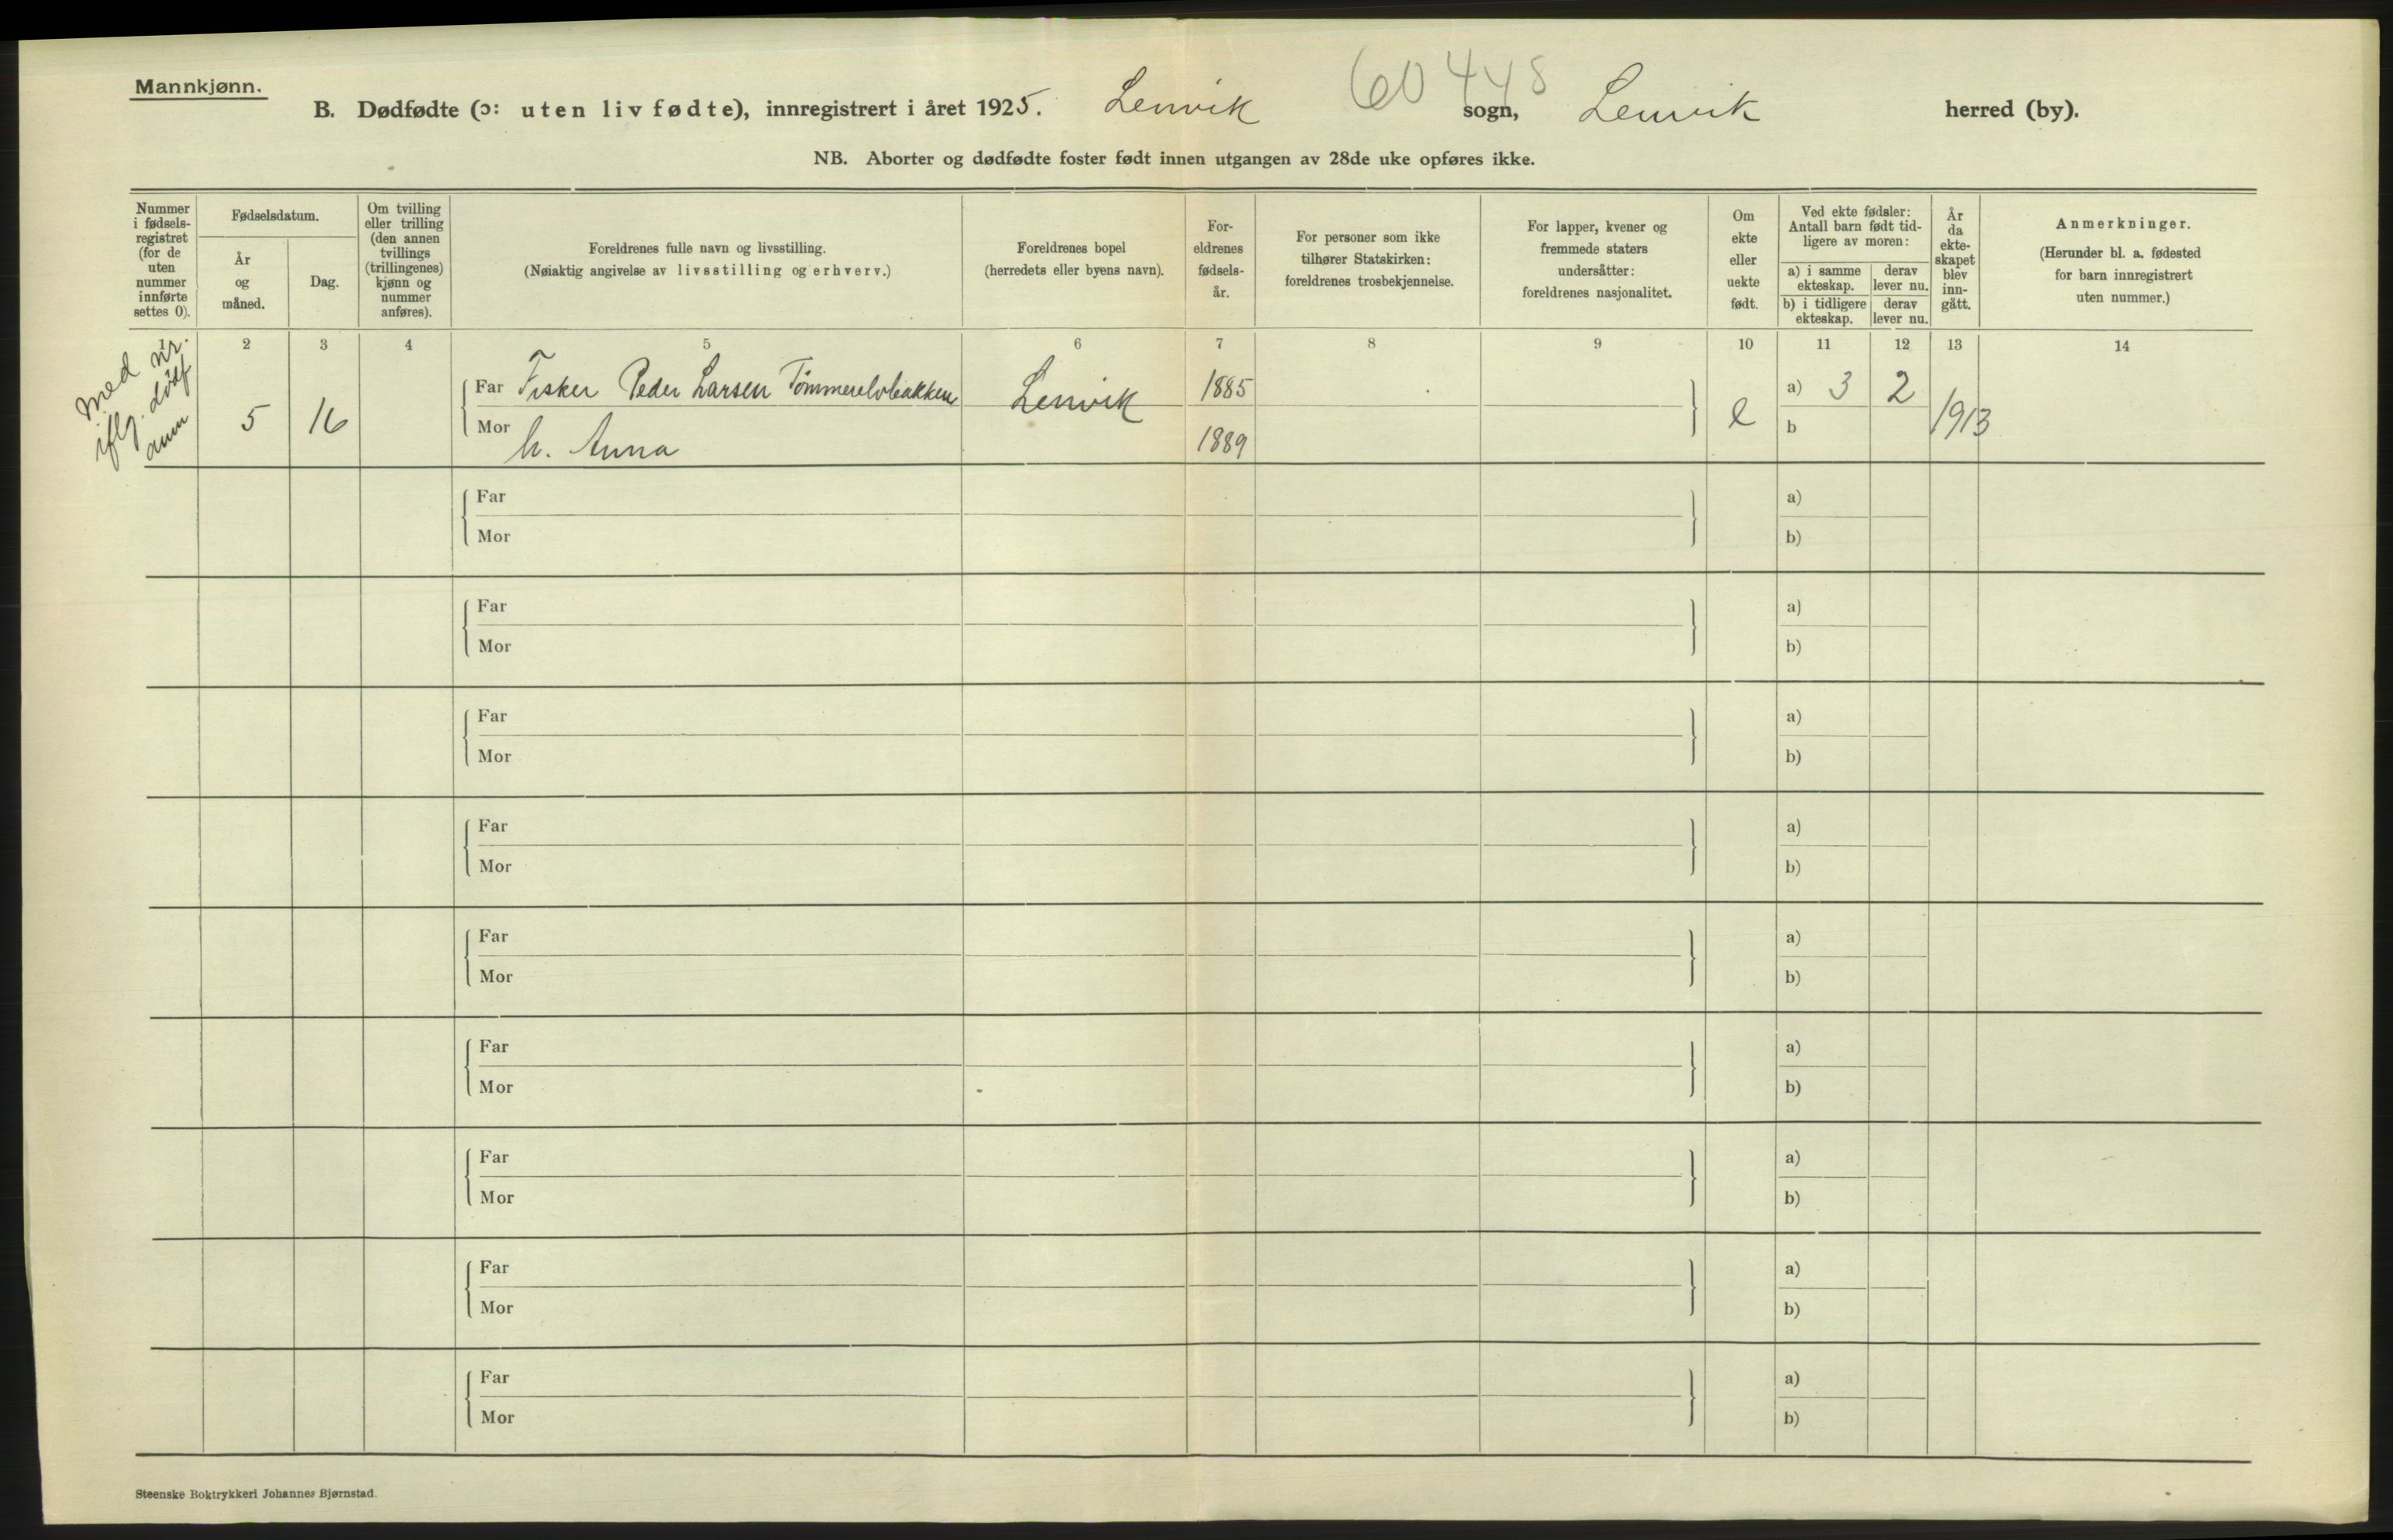 Mannkjønn.
60 448
B. Dødfødte (ɔ: uten liv fødte), innregistrert i året 1925. Lenvik sogn, Lenvik herred (by).
NB. Aborter og dødfødte foster født innen utgangen av 28de uke opføres ikke.
Nummer
i fødsels-
registret
(for de
uten
nummer
innførte
settes 0).
Fødselsdatum.
År
og
måned.
Dag.
Om tvilling
eller trilling
(den annen
tvillings
(trillingenes)
kjønn og
nummer
anføres).
Foreldrenes fulle navn og livsstilling.
(Nøiaktig angivelse av livsstilling og erhverv.)
Foreldrenes bopel
(herredets eller byens navn).
For-
eldrenes
fødsels-
år.
For personer som ikke
tilhører Statskirken:
foreldrenes trosbekjennelse.
For lapper, kvener og
fremmede staters
undersåtter:
foreldrenes nasjonalitet.
Om
ekte
eller
uekte
født.
Ved ekte fødsler:
Antall barn født tid-
ligere av moren:
a) i samme
ekteskap.
derav
lever nu.
b) i tidligere
ekteskap.
derav
lever nu.
År
da
ekte-
skapet
blev
inn-
gått.
Anmerkninger.
(Herunder bl. a. fødested
for barn innregistrert
uten nummer.)
2 3 4 5 6 7 8 9 10 11 12 13 14
Med nr.
iflg. dødf
anm
5 16
Far Fisker Peder Larsen Tømmerelvbakken Lenvik 1885
Mor h. Anna 1889
e
a) 3 2
b
1913
Far a)
Mor b)
Far a)
Mor b)
Far a)
Mor b)
Far a)
Mor b)
Far a)
Mor b)
Far a)
Mor b)
Far a)
Mor b)
Far a)
Mor b)
Far a)
Mor b)
Steenske Boktrykkeri Johannes Bjørnstad.